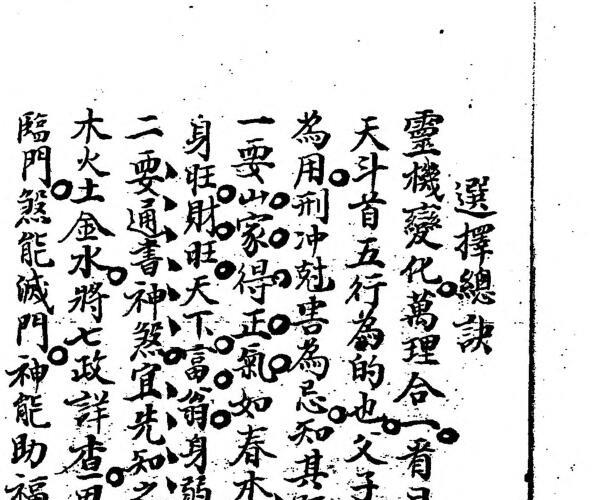 選擇總訣
靈機變化萬理合一看
天斗首五行為的也父子
為用刑冲尅害為忌知其
一要山家得正氣如春木
身旺財旺天下富翁身弱
二要通書神煞宜先知之
木火土金水將七政詳查
臨門煞能滅門神能助福